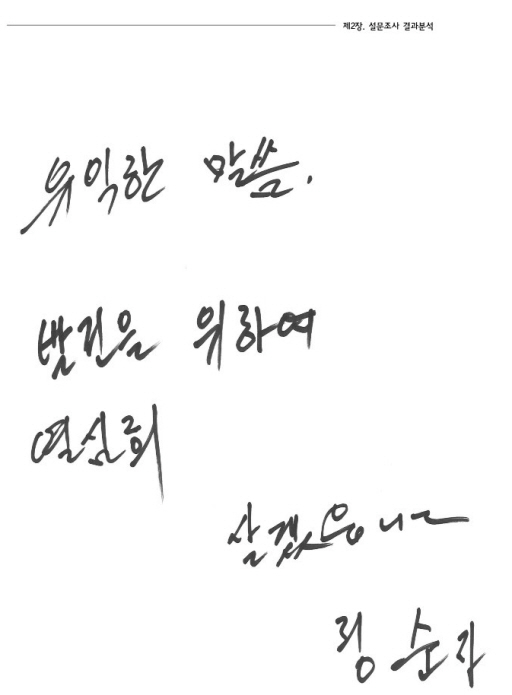 제2장. 설문조사 결과분석
유익한 말씀.
위하여
열심희
살겠읍니다
순자